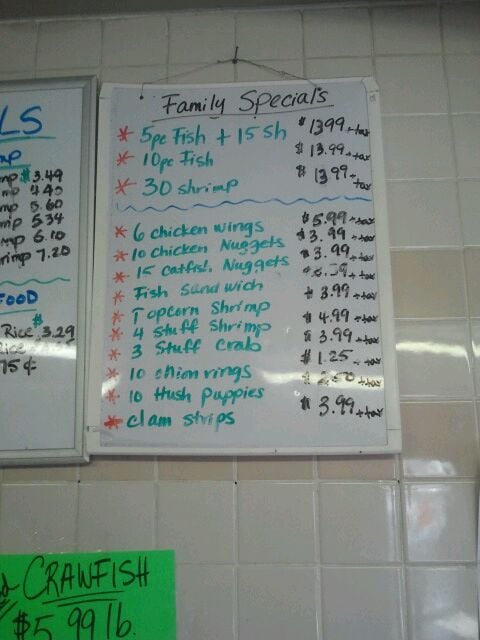 Family Specials
* 5pc Fish + 15 Sh $13.99 + tax
* 10pc Fish $13.99 + tax
* 30 shrimp $13.99 + tax
* 6 chicken wings $5.99 + tax
* 10 chicken Nuggets $3.99 + tax
* 15 catfish Nuggets $3.99 + tax
* Fish Sandwich
* Popcorn Shrimp $3.99 + tax
* 4 Stuff Shrimp $4.99 + tax
* 3 Stuff Crab $3.99 + tax
* 10 onion rings $1.25 + tax
* 10 Hush Puppies $2.50 + tax
* clam strips $3.99 + tax
LS
mp $3.49
mp 4.40
mp 5.60
mp 5.34
mp 6.10
rimp 7.20
FOOD
Rice $3.29
Rice
75¢
CRAWFISH
$5.99 lb.